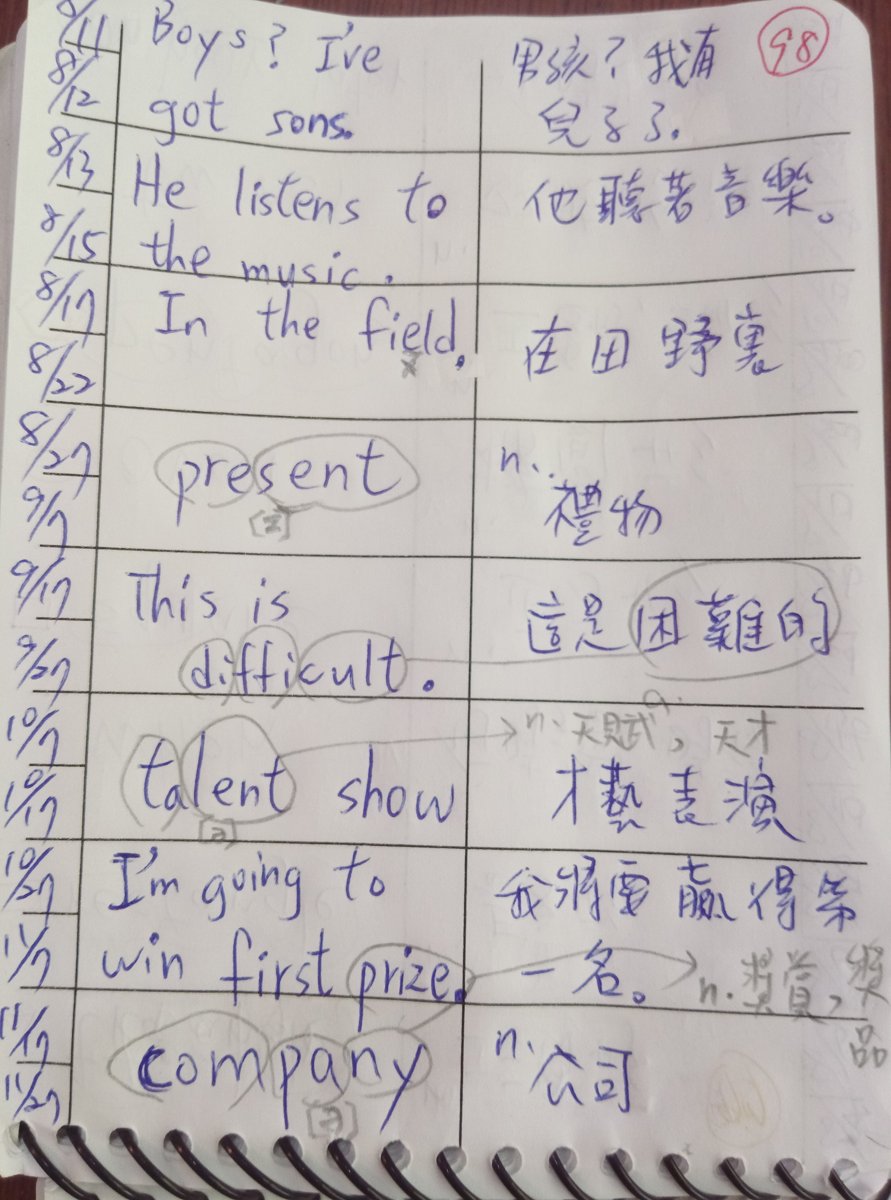 8/11
Boys? I've
男孩?我有
98
8/12
got sons.
兒子了.
8/13
He listens to
他聽著音樂。
8/15
the music.
8/17
In the field.
在田野裏
x
8/22
8/27
present
n.
[z]
禮物
9/7
9/17
This is
這是困難的
9/27
difficult.
10/7
n. a.
天賦, 天才
10/17
talent show
才藝表演
[ə]
10/27
I'm going to
我將要贏得第
11/7
win first prize.
一名。
n. 獎賞, 獎
品
11/17
company
n.
公司
11/27